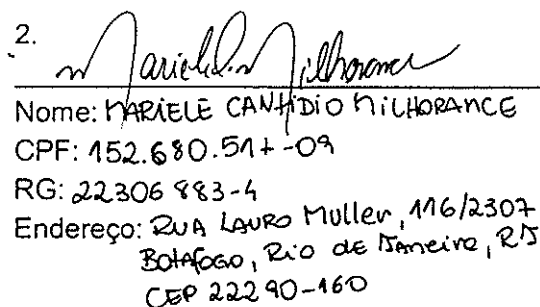 2.
Nome: MARIELE CANTIDIO MILHORANCE
CPF: 152.680.517-09
RG: 22306883-4
Endereço: RUA LAURO Muller, 116/2307
BOTAFOGO, Rio de Janeiro, RJ
CEP 22290-160